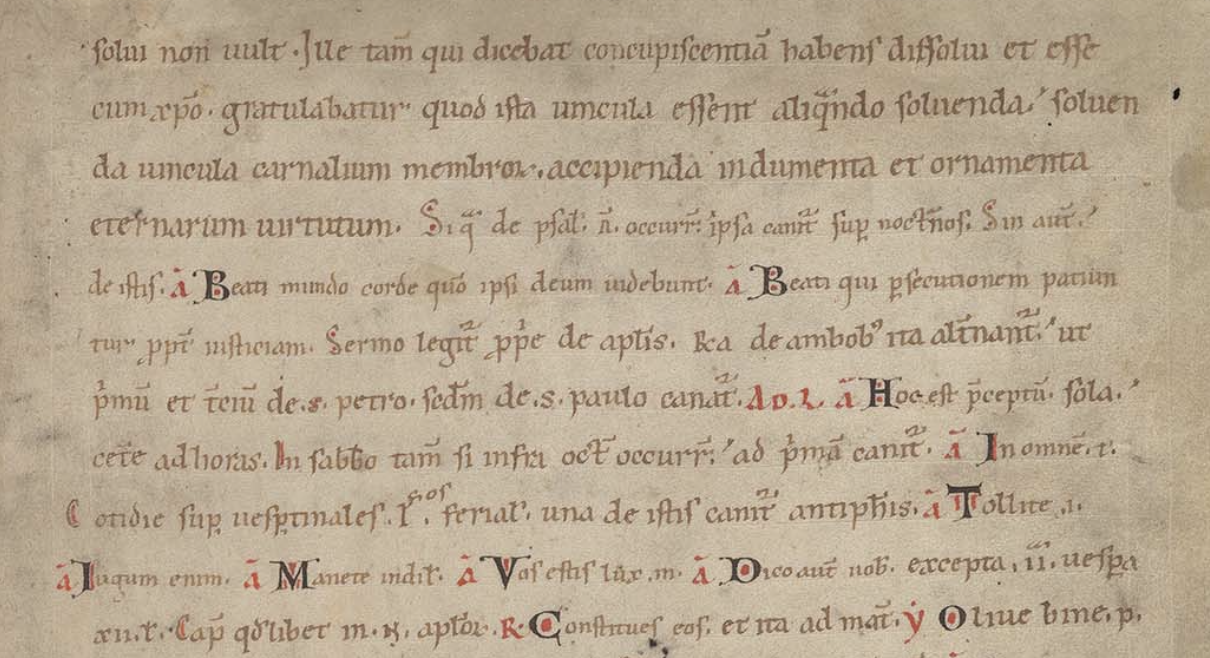 solui non uult. Ille tam̄ qui dicebat concupiscentiā habens dissolui et esse
cum xp̄o. gratulabatur quod ista uincula essent aliqͣndo soluenda. soluen
da uincula carnalium membroꝝ. accipienda indumenta et ornamenta
eternarum uirtutum. Si qͣ de psal. n̄. occurr̄. ip̄sa canit᷑ suꝑ noct̄nos. Sin aut̄.
de istis. a̅ Beati mundo corde quō ipsi deum uidebunt. a̅ Beati qui ꝑsecutionem patiun
tur ꝓpt̄ iusticiam. Sermo legit᷑ ꝓp̄e de apl̄is. de ambobꝰ ita alt̄nant᷑. ut
p̄mū et t̄ciū de .s. petro. sed̄m de .s. paulo canat᷑. Ad .l. a̅ Hoc est p̄ceptū. sola.
cet̄e ad horas. In sabb̄o tam̄ si infra oct̄ occurr̄. ad p̄mā canit᷑. a̅ In omnē. t.
Cotidie suꝑ uesꝑtinales. ferial. una de istis canit᷑ antiph̄is. a̅ Tollite .i.
a̅ Iugum enim. a̅ Manete indil. a̅ Vos estis lux .m. a̅ Dico aut̄ uob̄. excepta .ii. uesꝑa
Cap̄ qd̄libet apl̄oꝝ. R Constitues eos. et ita ad mat̄. ẏ Oliue bine. p.